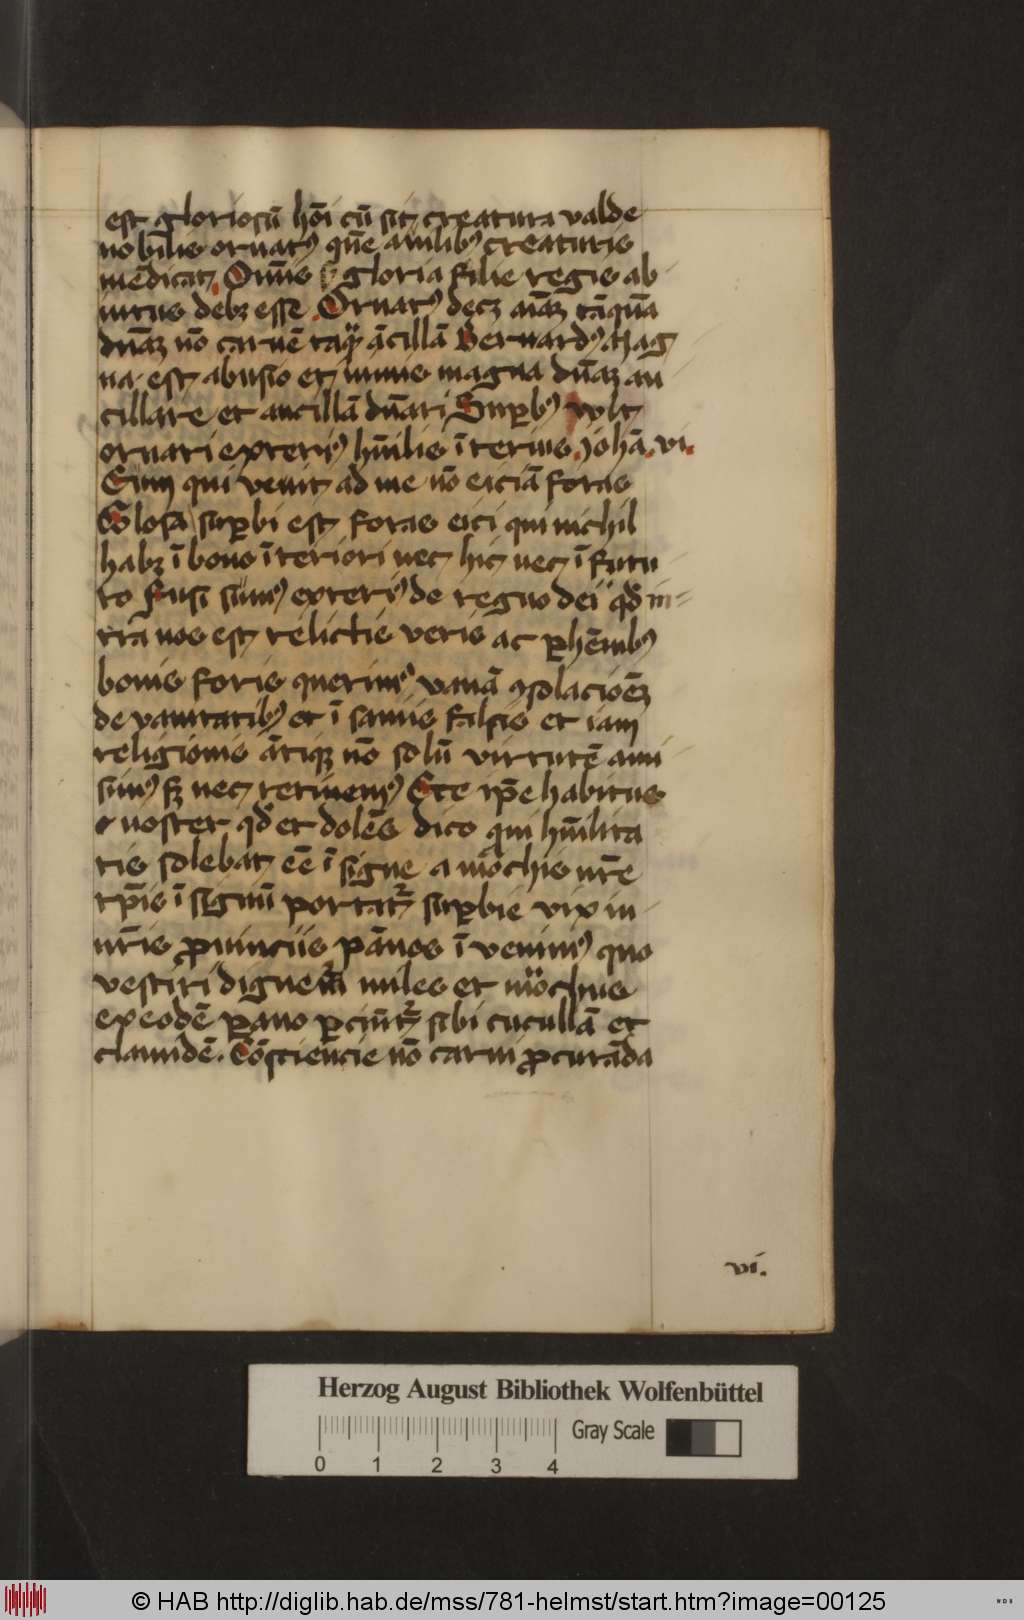 est gloriosū hōi cū sit creatura valde
nobilis ornatꝰ qūe a vilibꝰ creaturis
mēdicat Om̄is gloria filie regis ab
intus debꝫ esse Ornatꝰ decꝫ aīaꝫ tāquā
dn̄aꝫ nō carnē taqꝫ ācillā Bernardꝰ Mag
na est abusio et nimis magna dn̄aꝫ an
cillare et ancillā dn̄ari Suꝑbꝰ vult
ornari exteriꝰ hūilis īterius Johā. vi.
Eum qui venit ad me nō eiciā foras
Glosa suꝑbi est foras eici qui nichil
habꝫ ī bono īteriori nec hic nec ī futu
ro fusi sumꝰ exteriꝰ de regno dei qd̄ in
tra nos est relictis veris ac ꝑhēnibꝰ
bonis foris querimꝰ vanā ꝯsolacioēꝫ
de vanitatibꝰ et ī saniis falsis et iam
religionis ātiqꝫ nō solū virtutē ami
simꝰ sꝫ nec retinemꝰ Ecce ip̄e habitus
noster qd̄ et dolēs dico qui hūilita
tis solebat eē īsigne a mōchis nr̄e
tp̄is ī signū portatur suꝑbie vix in
nr̄is ꝓuinciis pānos ī venimꝰ quo
vestiri dignemur miles et mōchus
ex eodē panno ꝑciūtur sibi cucullā et
clamidē. Cōsciencie nō carni ꝓcurāda
vi.
Herzog August Bibliothek Wolfenbüttel
Gray Scale
0 1 2 3 4
© HAB http://diglib.hab.de/mss/781-helmst/start.htm?image=00125